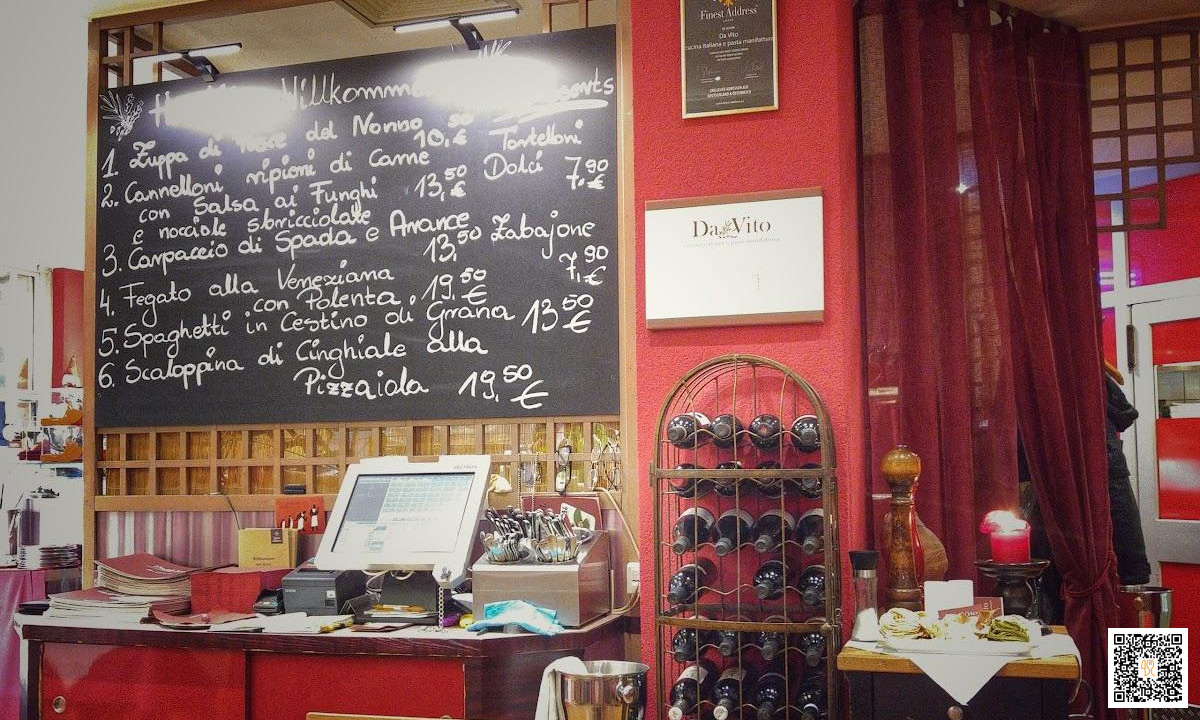 Willkomm
1. Zuppa di del Nonno 10,50 €
2. Cannelloni ripioni di Carne
con Salsa ai Funghi 13,50 €
e nocciole sbricciolate
3. Carpaccio di Spada e Arance
13,50
4. Fegato alla Veneziana
con Polenta 19,50 €
5. Spaghetti in Cestino di Grana 13,50 €
6. Scaloppina di Cinghiale alla
Pizzaiola 19,50 €
Tortelloni
Dolci 7,90 €
Zabajone
7,90 €
Finest Address
Da Vito
cucina italiana e pasta manifattura
Da Vito